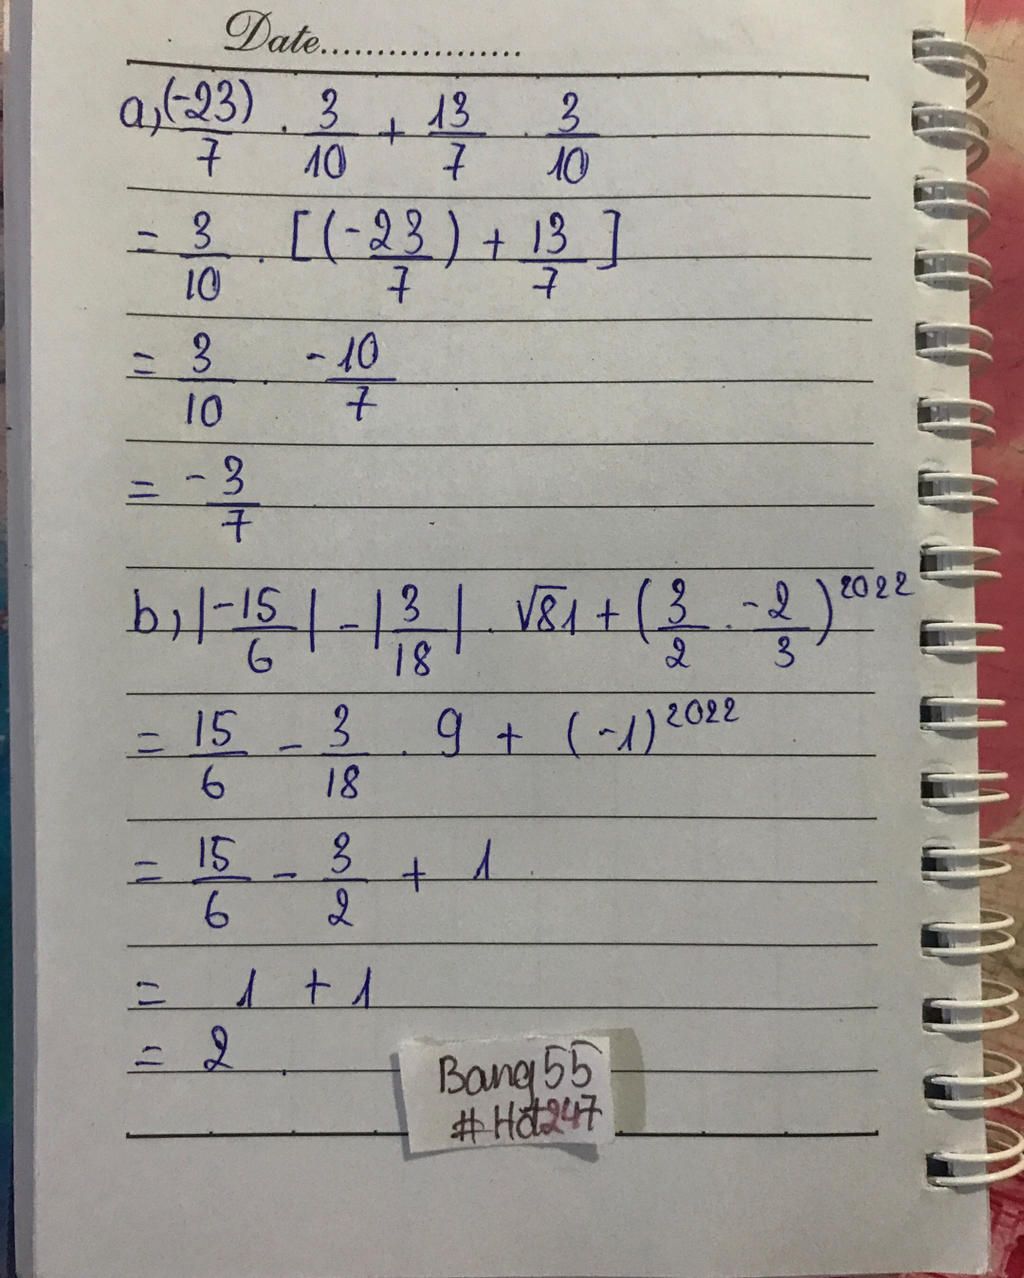 Date..................
a, (-23)/7 . 3/10 + 13/7 . 3/10
= 3/10 . [(-23/7) + 13/7]
= 3/10 . -10/7
= -3/7
b, |-15/6| - |3/18| . √81 + (3/2 . -2/3)^2022
= 15/6 - 3/18 . 9 + (-1)^2022
= 15/6 - 3/2 + 1
= 1 + 1
= 2
Bang55
#Hd247